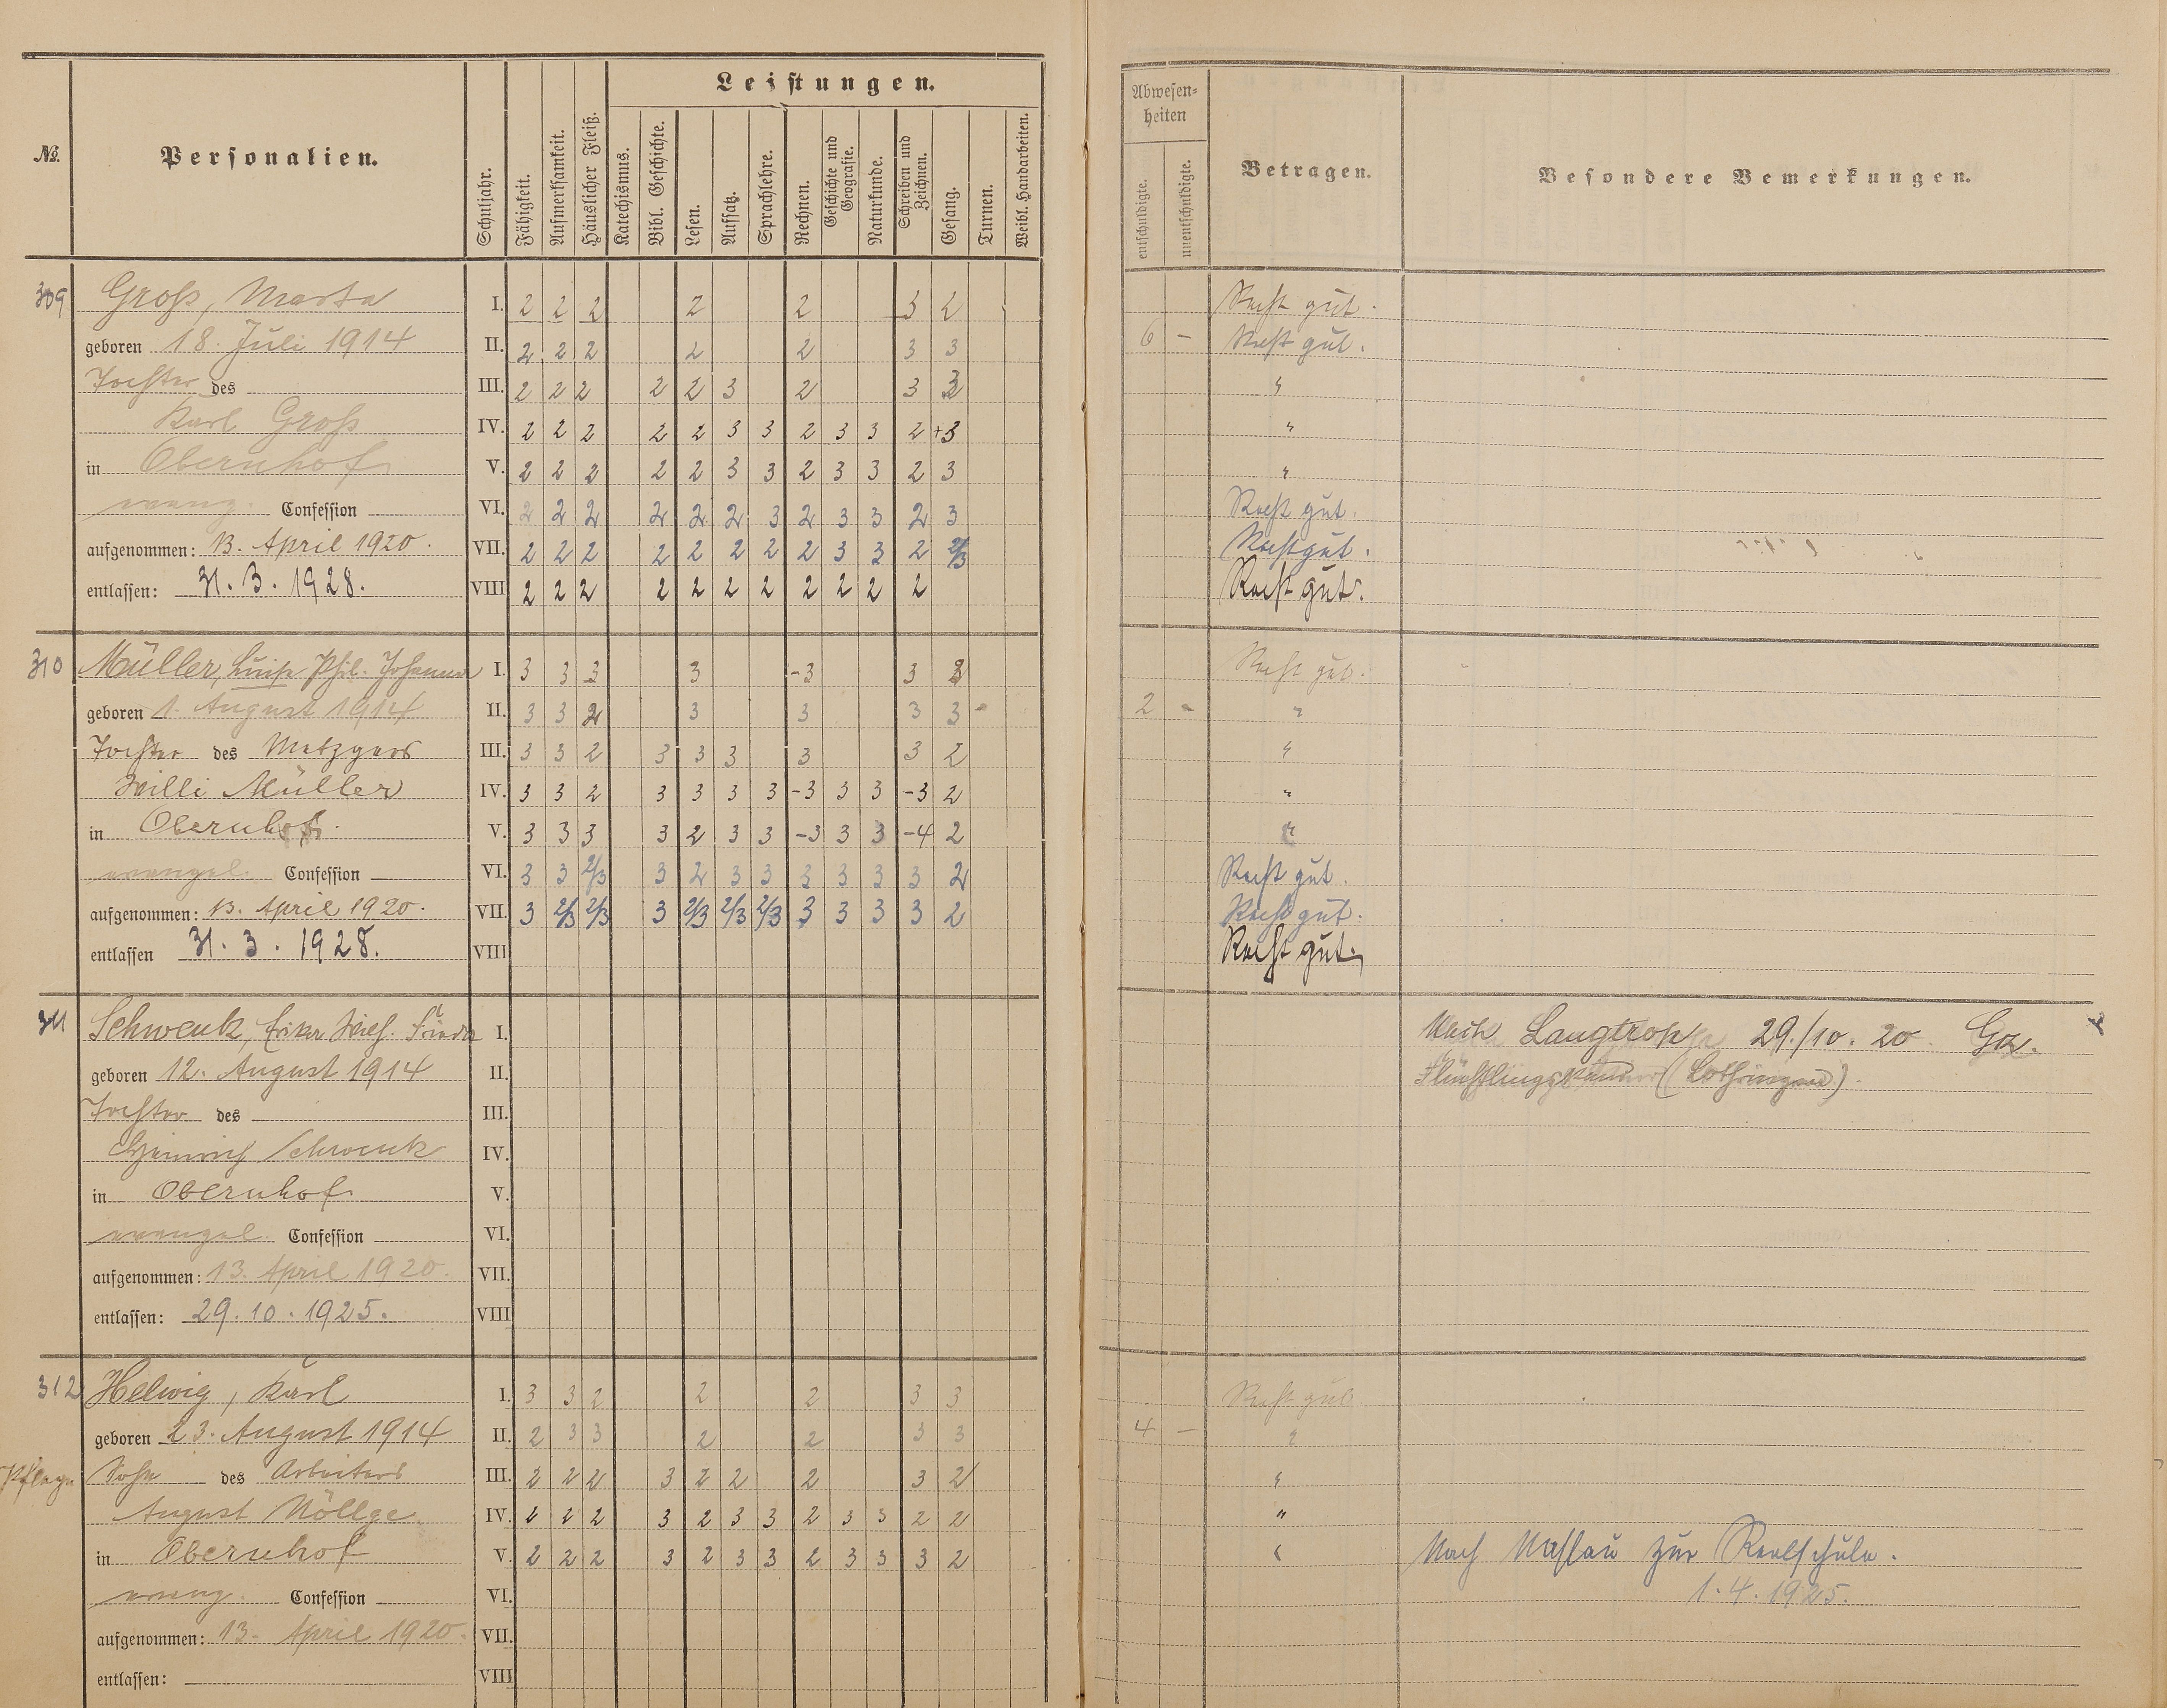 Leistungen.
Abwesen-
heiten
No.
Personalien.
Schuljahr.
Fähigkeit.
Aufmerksamkeit.
Häuslicher Fleiß.
Katechismus.
Bibl. Geschichte.
Lesen.
Aufsatz.
Sprachlehre.
Rechnen.
Geschichte und
Geografie.
Naturkunde.
Schreiben und
Zeichnen.
Gesang.
Turnen.
Weibl. Handarbeiten.
entschuldigte.
unentschuldigte.
Betragen.
Besondere Bemerkungen.
309 Groß, Marta I. 2 2 2 2 2 3 2 Recht gut.
geboren 18. Juli 1914 II. 2 2 2 2 2 3 3 6 – Recht gut.
Tochter des III. 2 2 2 2 2 3 2 3 3 "
Karl Groß IV. 2 2 2 2 2 3 3 2 3 3 2 +3 "
in Obernhof V. 2 2 2 2 2 3 3 2 3 3 2 3 "
evang. Confession VI. 2 2 2 2 2 2 3 2 3 3 2 3 Recht gut.
aufgenommen: 13. April 1920. VII. 2 2 2 2 2 2 2 2 3 3 2 2/3 Recht gut.
entlassen: 31. 3. 1928. VIII 2 2 2 2 2 2 2 2 2 2 2 Recht gut.
310 Müller, Luise Phil. Johanna I. 3 3 3 3 -3 3 Recht gut.
geboren 1. August 1914 II. 3 3 2 3 3 3 3 2 - "
Tochter des Metzgers III. 3 3 2 3 3 3 3 3 2 "
Willi Müller IV. 3 3 2 3 3 3 3 -3 3 3 -3 2 "
in Obernhof. V. 3 3 3 3 2 3 3 -3 3 3 -4 2 "
evangel. Confession VI. 3 3 2/3 3 2 3 3 3 3 3 3 2 Recht gut.
aufgenommen: 13. April 1920. VII. 3 2/3 2/3 3 2/3 2/3 2/3 3 3 3 3 2 Recht gut.
entlassen 31. 3. 1928. VIII Recht gut.
311 Schwenk, Erika Wilh. I. Nach 29./10. 20
geboren 12. August 1914 II. Flüchtlingskinder (Lothringen).
Tochter des III.
Heinrich Schwenk IV.
in Obernhof V.
evangel. Confession VI.
aufgenommen: 13. April 1920. VII.
entlassen: 29. 10. 1925. VIII
312 Helwig, Karl I. 3 3 2 2 2 3 3 Recht gut
geboren 23. August 1914 II. 2 3 3 2 2 3 3 4 – "
Pflege Sohn des Arbeiters III. 2 2 2 3 2 2 2 3 2 "
August Nöllge IV. 2 2 2 3 2 3 3 2 3 3 2 2 "
in Obernhof V. 2 2 2 3 2 3 3 2 3 3 3 2 " Nach Nassau zur Realschule.
evang. Confession VI. 1. 4. 1925.
aufgenommen: 13. April 1920. VII.
entlassen: VIII